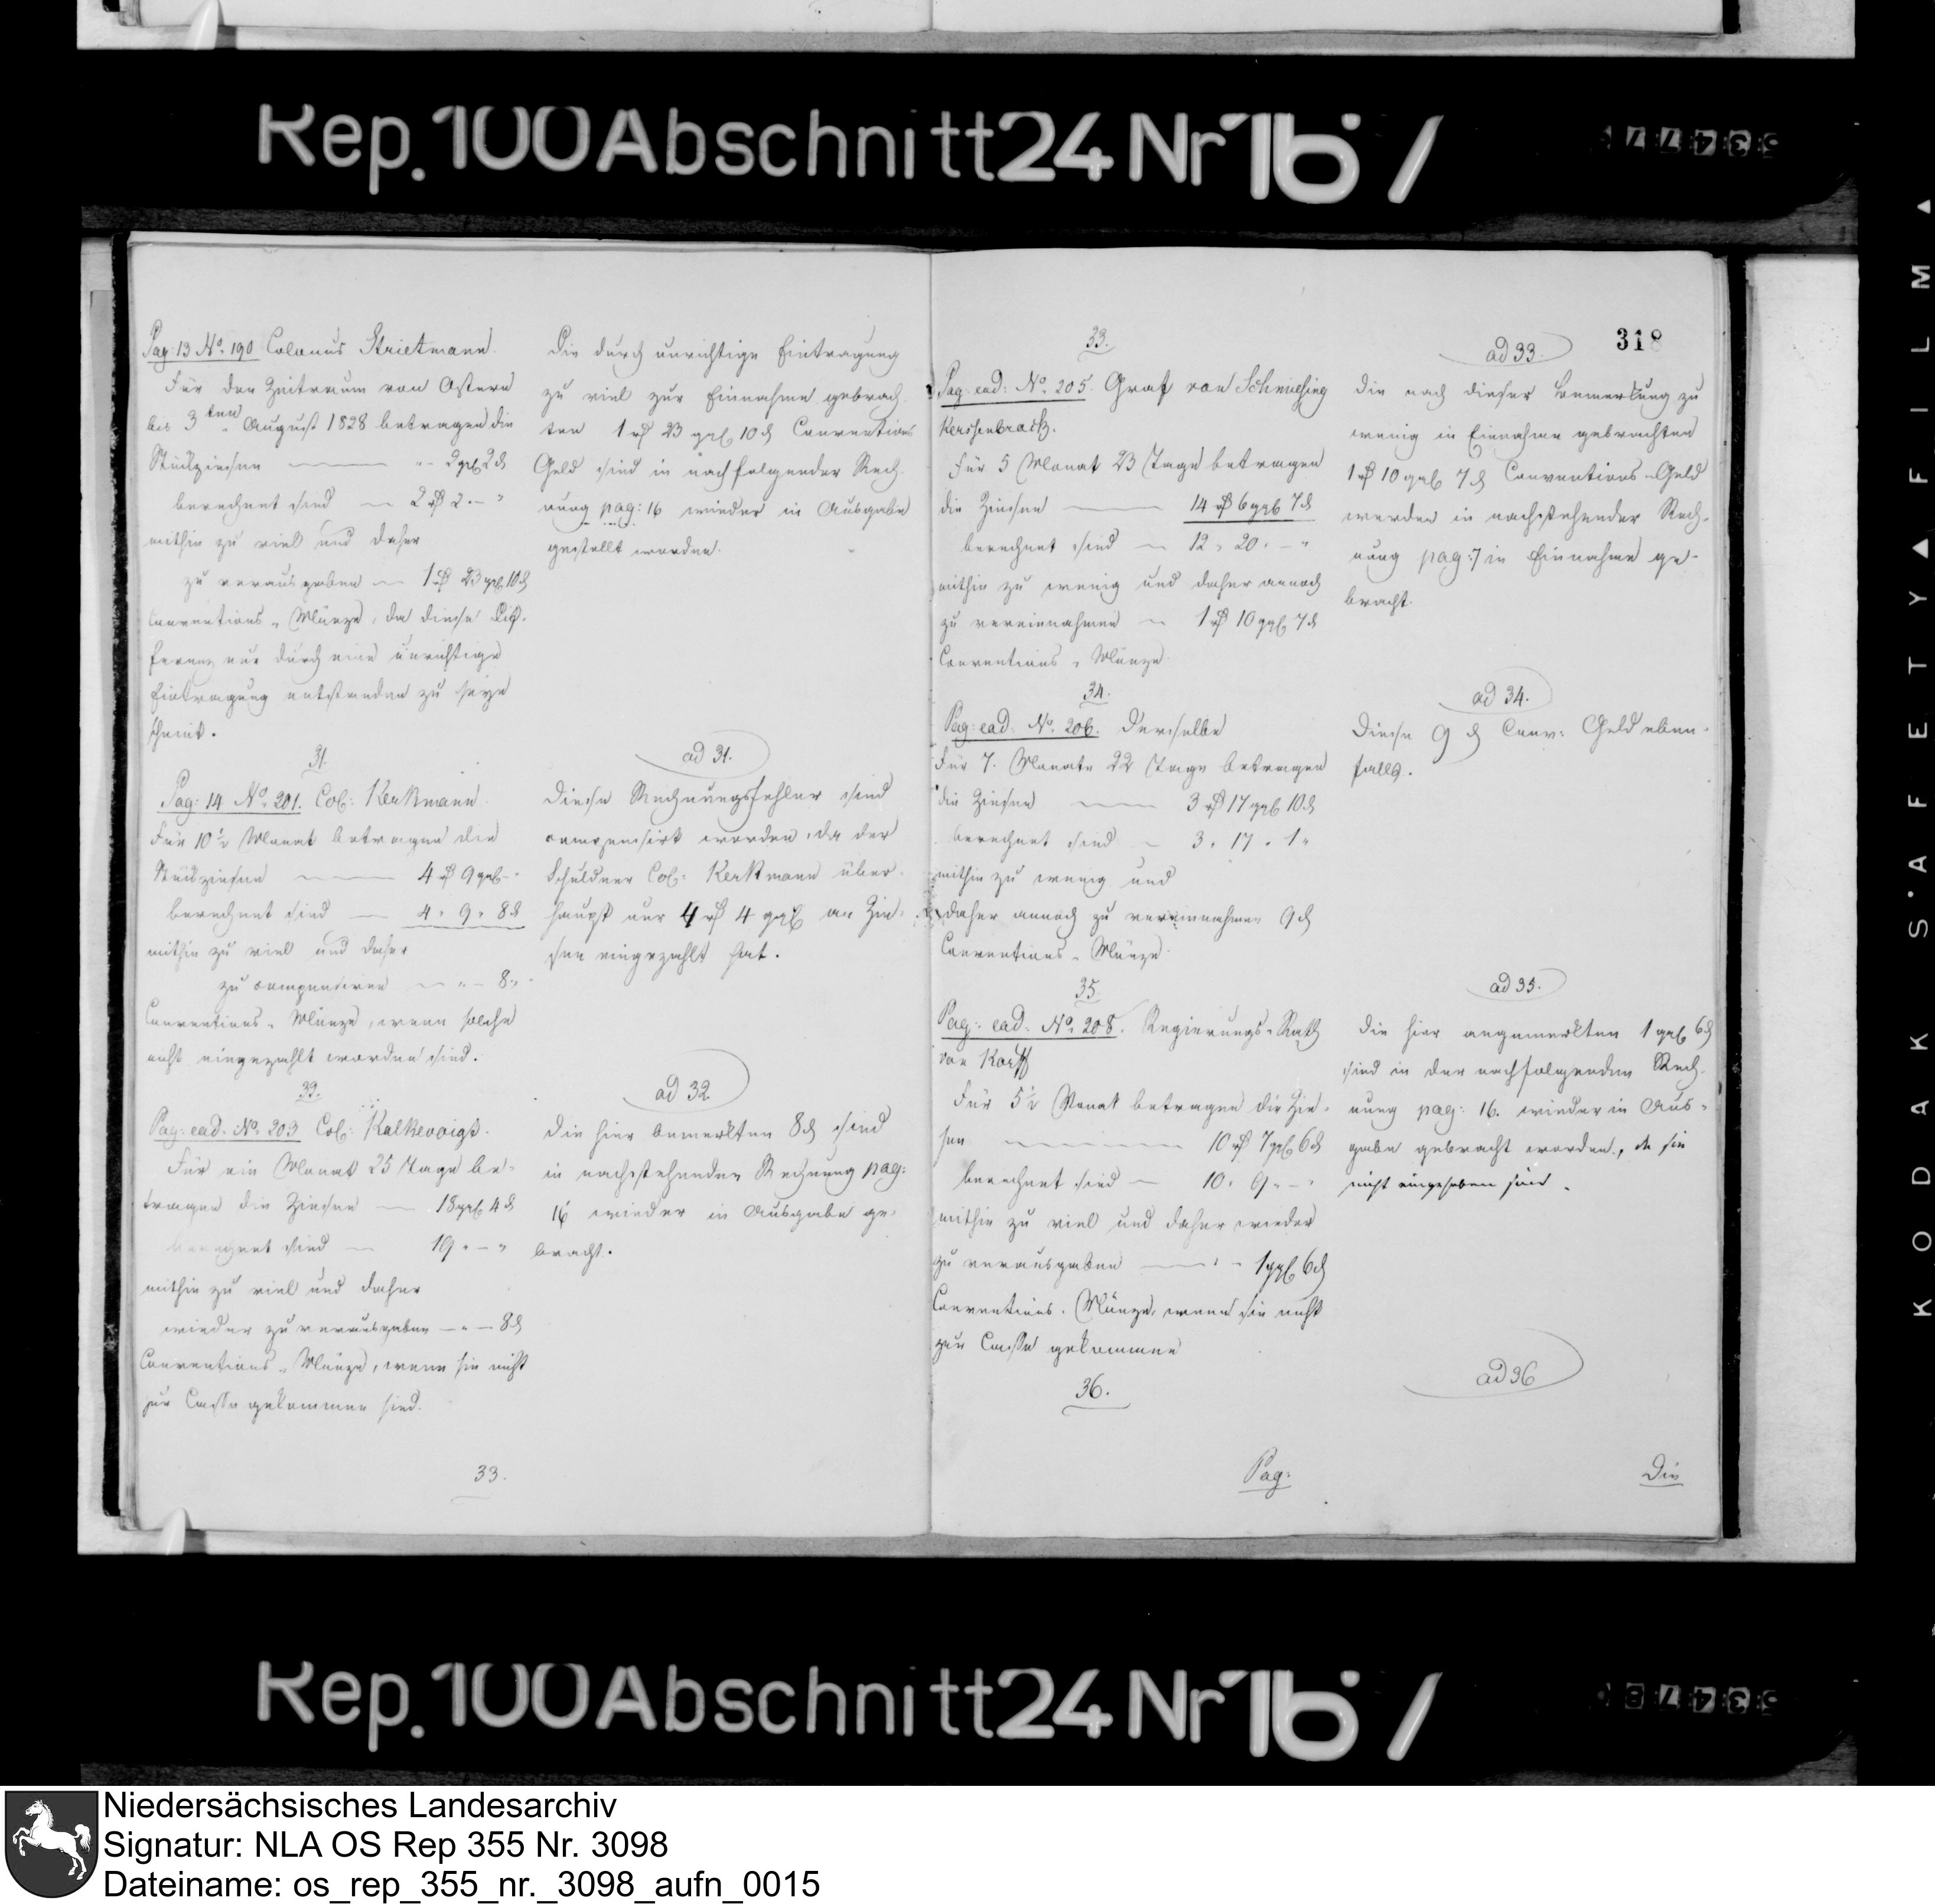 Rep. 100 Abschnitt 24 Nr 16 /
Pag: 13 No. 190 Colonus Strietmann.
Für den Zeitraum von Ostern
bis 3ten August 1828 betragen die
Stückzinsen — " — 2 ggl 2 d
berechnet sind — 2 rl 2 . — "
mithin zu viel und daher
zu verausgaben — 1 rl 23 ggl 10 d
Conventions-Münze, da diese Dif-
ferenz nur durch eine unrichtige
Eintragung entstanden zu seyn
scheint.
31.
Pag: 14 No. 201. Col: Kerkmann
Für 10½ Monat betragen die
Stückzinsen — 4 rl 9 ggl — "
berechnet sind — 4 " 9 " 8 d
mithin zu viel und daher
zu compensiren — " — 8 "
Conventions-Münze, wenn solche
nicht eingezahlt worden sind.
32.
Pag: ead. No. 203 Col: Kalkevoigt.
Für ein Monat 25 Tage be-
tragen die Zinsen — 18 ggl 4 d
berechnet sind — 19 " — "
mithin zu viel und daher
wieder zu verausgaben — " — 8 d
Conventions-Münze, wenn sie nicht
zur Casse gekommen sind.
33.
Die durch unrichtige Eintragung
zu viel zur Einnahme gebrach-
ten 1 rl 23 ggl 10 d Conventions
Geld sind in nachfolgender Rech-
nung pag: 16 wieder in Ausgabe
gestellt worden.
ad 31.
Diese Rechnungsfehler sind
compensirt worden, da der
Schuldner Col: Kerkmann über-
haupt nur 4 rl 4 ggl an Zin-
sen eingezahlt hat.
ad 32
Die hier bemerkten 8 d sind
in nachstehender Rechnung pag:
16 wieder in Ausgabe ge-
bracht.
318
33.
Pag: ead: No. 205. Graf von Schmiesing
Kerssenbrock.
Für 5 Monat 23 Tage betragen
die Zinsen — 14 rl 6 ggl 7 d
berechnet sind — 12 " 20 " — "
mithin zu wenig und daher annoch
zu vereinnahmen — 1 rl 10 ggl 7 d
Conventions-Münze.
34.
Pag: ead. No. 206. Derselbe
Für 7. Monate 22 Tage betragen
die Zinsen — 3 rl 17 ggl 10 d
berechnet sind — 3 " 17 " 1 "
mithin zu wenig und
daher annoch zu vereinnahmen 9 d
Conventions-Münze.
35.
Pag: ead: No. 208. Regierungs-Rath
von Korff
Für 5½ Monat betragen die Zin-
sen — 10 rl 7 ggl 6 d
berechnet sind — 10 " 9 " — "
mithin zu viel und daher wieder
zu verausgaben — " — 1 ggl 6 d
Conventions-Münze, wenn sie nicht
zur Casse gekommen
36.
Pag:
ad 33.
Die nach dieser Bemerkung zu
wenig in Einnahme gebrachten
1 rl 10 ggl 7 d Conventions-Geld
werden in nachstehender Rech-
nung pag: 7 in Einnahme ge-
bracht.
ad 34.
Diese 9 d Conv: Geld eben-
falls.
ad 35.
Die hier angemerkten 1 ggl 6 d
sind in der nachfolgenden Rech-
nung pag: 16. wieder in Aus-
gabe gebracht worden, da sie
nicht eingehoben sind.
ad 36
Die
Rep. 100 Abschnitt 24 Nr 16 /
KODAK S'AFETY▲FILM▲
Niedersächsisches Landesarchiv
Signatur: NLA OS Rep 355 Nr. 3098
Dateiname: os_rep_355_nr._3098_aufn_0015